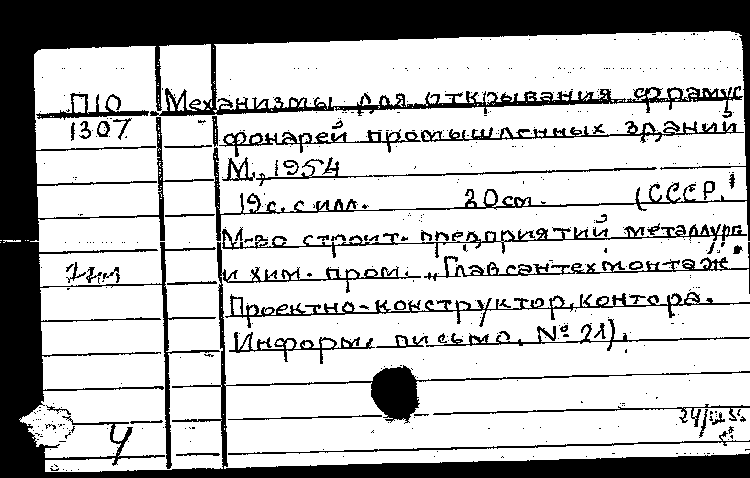 П10 Механизмы для открывания фрамуг
1307 фонарей промышленных зданий
М., 1954
19 с. с илл. 20 см. (СССР.
М-во строит. предприятий металлург
и хим. пром. „Главсантехмонтаж".
Проектно-конструктор. контора.
Информ. письмо. № 21).
У
24/III 55